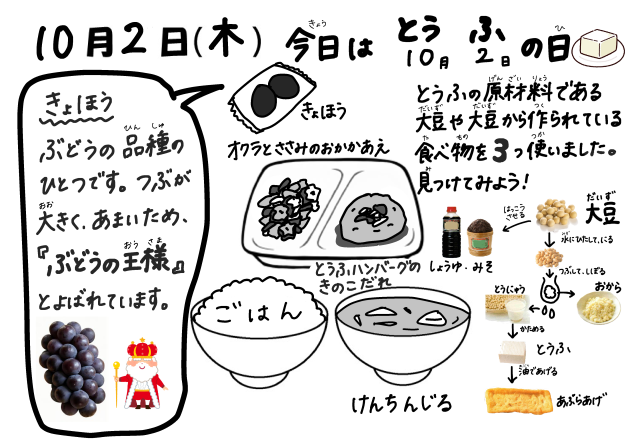 10月2日(木) 今日は とう ふ の日
きょう
10月 2日
ひ
きょほう
ぶどうの品種の
ひん しゅ
ひとつです。つぶが
大きく、あまいため、
おお
『ぶどうの王様』
おう さま
とよばれています。
きょほう
オクラとささみのおかかあえ
とうふハンバーグの
きのこだれ
ごはん
けんちんじる
とうふの原材料である
げん ざい りょう
大豆や大豆から作られている
だいず だいず つく
食べ物を3つ使いました。
た もの つか
見つけてみよう!
み
大豆
だいず
はっこう
させる
しょうゆ・みそ
水にひたして、にる
みず
つぶして、しぼる
とうにゅう
おから
かためる
とうふ
油であげる
あぶら
あぶらあげ